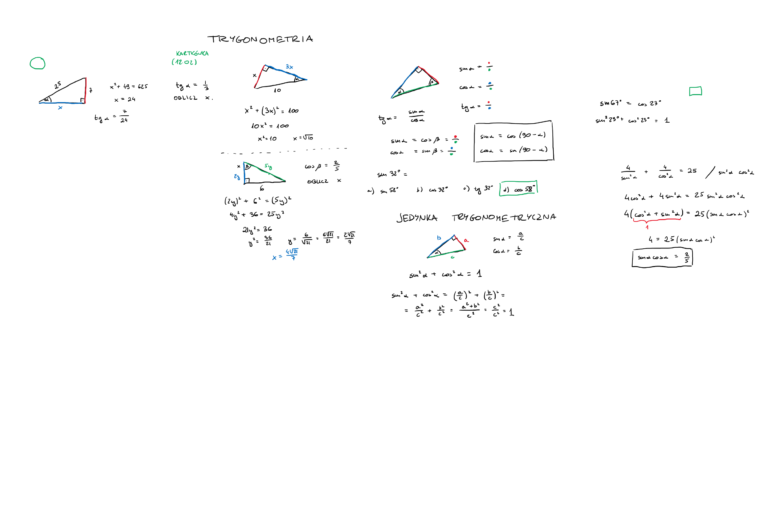 TRYGONOMETRIA
25
7
x
x² + 49 = 625
x = 24
tg α = 7/24
KARTKÓWKA
tg α = 1/3
OBLICZ x.
x
3x
10
x² + (3x)² = 100
10x² = 100
x² = 10 x = √10
2y
5y
6
cos β = 2/5
OBLICZ x
(2y)² + 6² = (5y)²
4y² + 36 = 25y²
21y² = 36
y² = 36/21 y = 6/√21 = 6√21/21 = 2√21/7
x = 4√21/7
sin α =
cos α =
tg α =
tg α = sin α/cos α
sin α = cos β =
cos α = sin β =
sin α = cos (90 - α)
cos α = sin (90 - α)
sin 32° =
a) sin 58° b) cos 32° c) tg 32° d) cos 58°
JEDYNKA TRYGONOMETRYCZNA
b
a
c
sin α = a/c
cos α = b/c
sin² α + cos² α = 1
sin² α + cos² α = (a/c)² + (b/c)² =
= a²/c² + b²/c² = a² + b²/c² = c²/c² = 1
sin 67° = cos 23°
sin² 23° + cos² 23° = 1
4/sin² α + 4/cos² α = 25 / sin² α cos² α
4cos² α + 4 sin² α = 25 sin² α cos² α
4(cos² α + sin² α) = 25 (sin α cos α)²
1
4 = 25 (sin α cos α)²
sin α cos α = 2/5